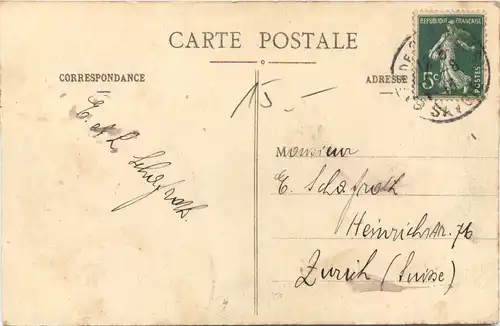 CARTE POSTALE
CORRESPONDANCE
ADRESSE
REPUBLIQUE FRANÇAISE
5c
POSTES
15.–
E. &
Schafroth.
Monsieur
E. Schafroth
Heinrichstr. 76
Zurich (Suisse)